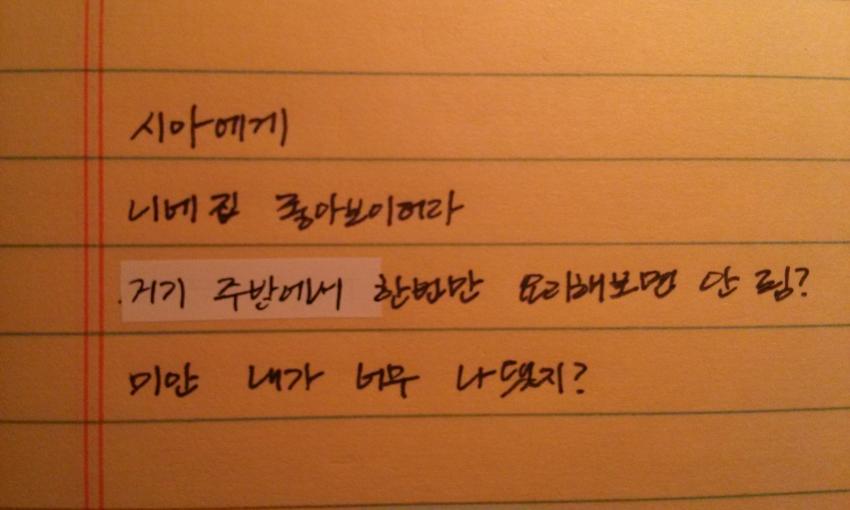 시아에게
니베집 좋아보이허라
거기 주방에서 한번만 요리해보면 안 됨?
미안 내가 너무 나댔지?